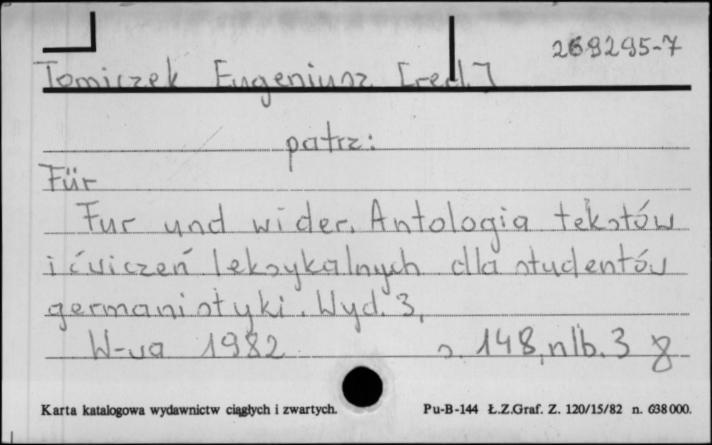 269295-7
Tomiczek Eugeniusz [red.]
patrz:
Für
Fur und wider. Antologia tekstów
i ćwiczeń leksykalnych dla studentów
germanistyki. Wyd. 3,
W-wa 1982 s. 148, nlb. 3
Karta katalogowa wydawnictw ciągłych i zwartych. Pu-B-144 Ł.Z.Graf. Z. 120/15/82 n. 638000.